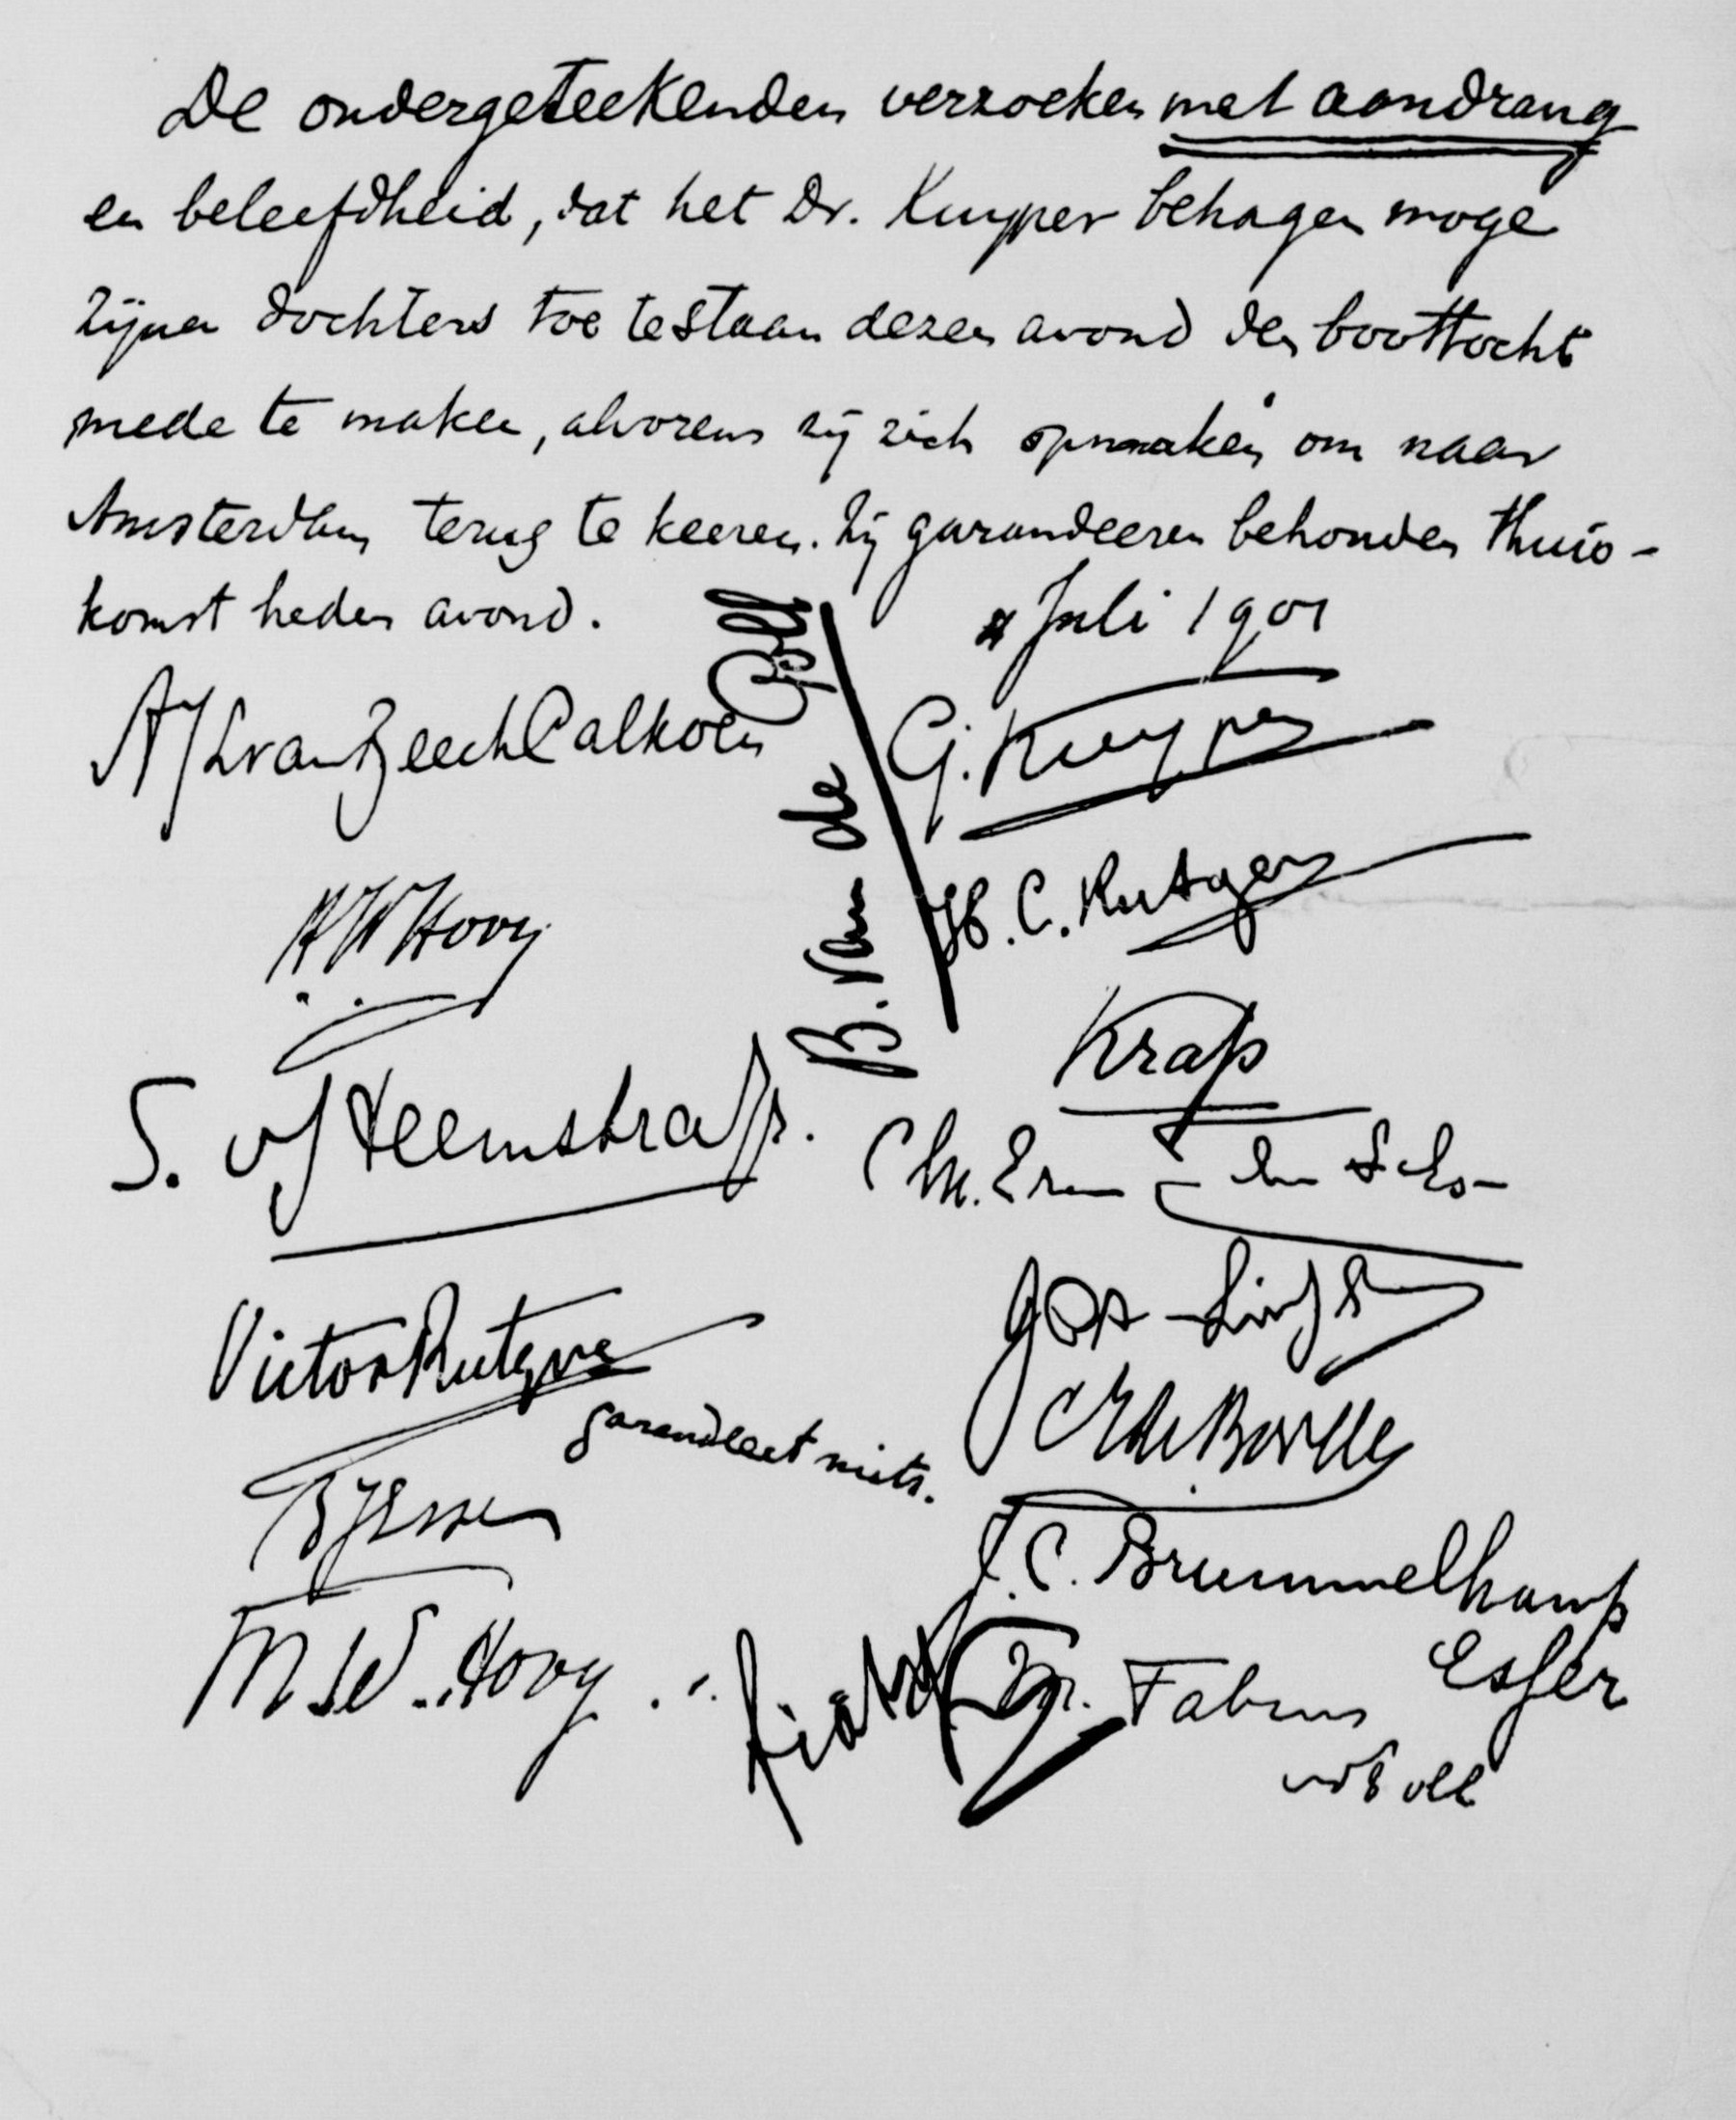 De ondergeteekenden verzoeken met aandrang
en beleefdheid, dat het Dr. Kuyper behagen moge
zijne dochters toe te staan dezen avond den boottocht
mede te maken, alvorens zij zich opmaken om naar
Amsterdam terug te keeren. Zij garandeeren behouden thuis-
komst heden avond.
4 Juli 1901
A J L van Beeck Calkoen
G. Kuyper
H. C. Rutgers
H W Hovy
B. van de
Krap
S. v Heemstra Jr.
Victor Rutgers
garandeert niets.
J. C. Brummelkamp
M W. Hovy
fiat
Mr. Fabius
Esser